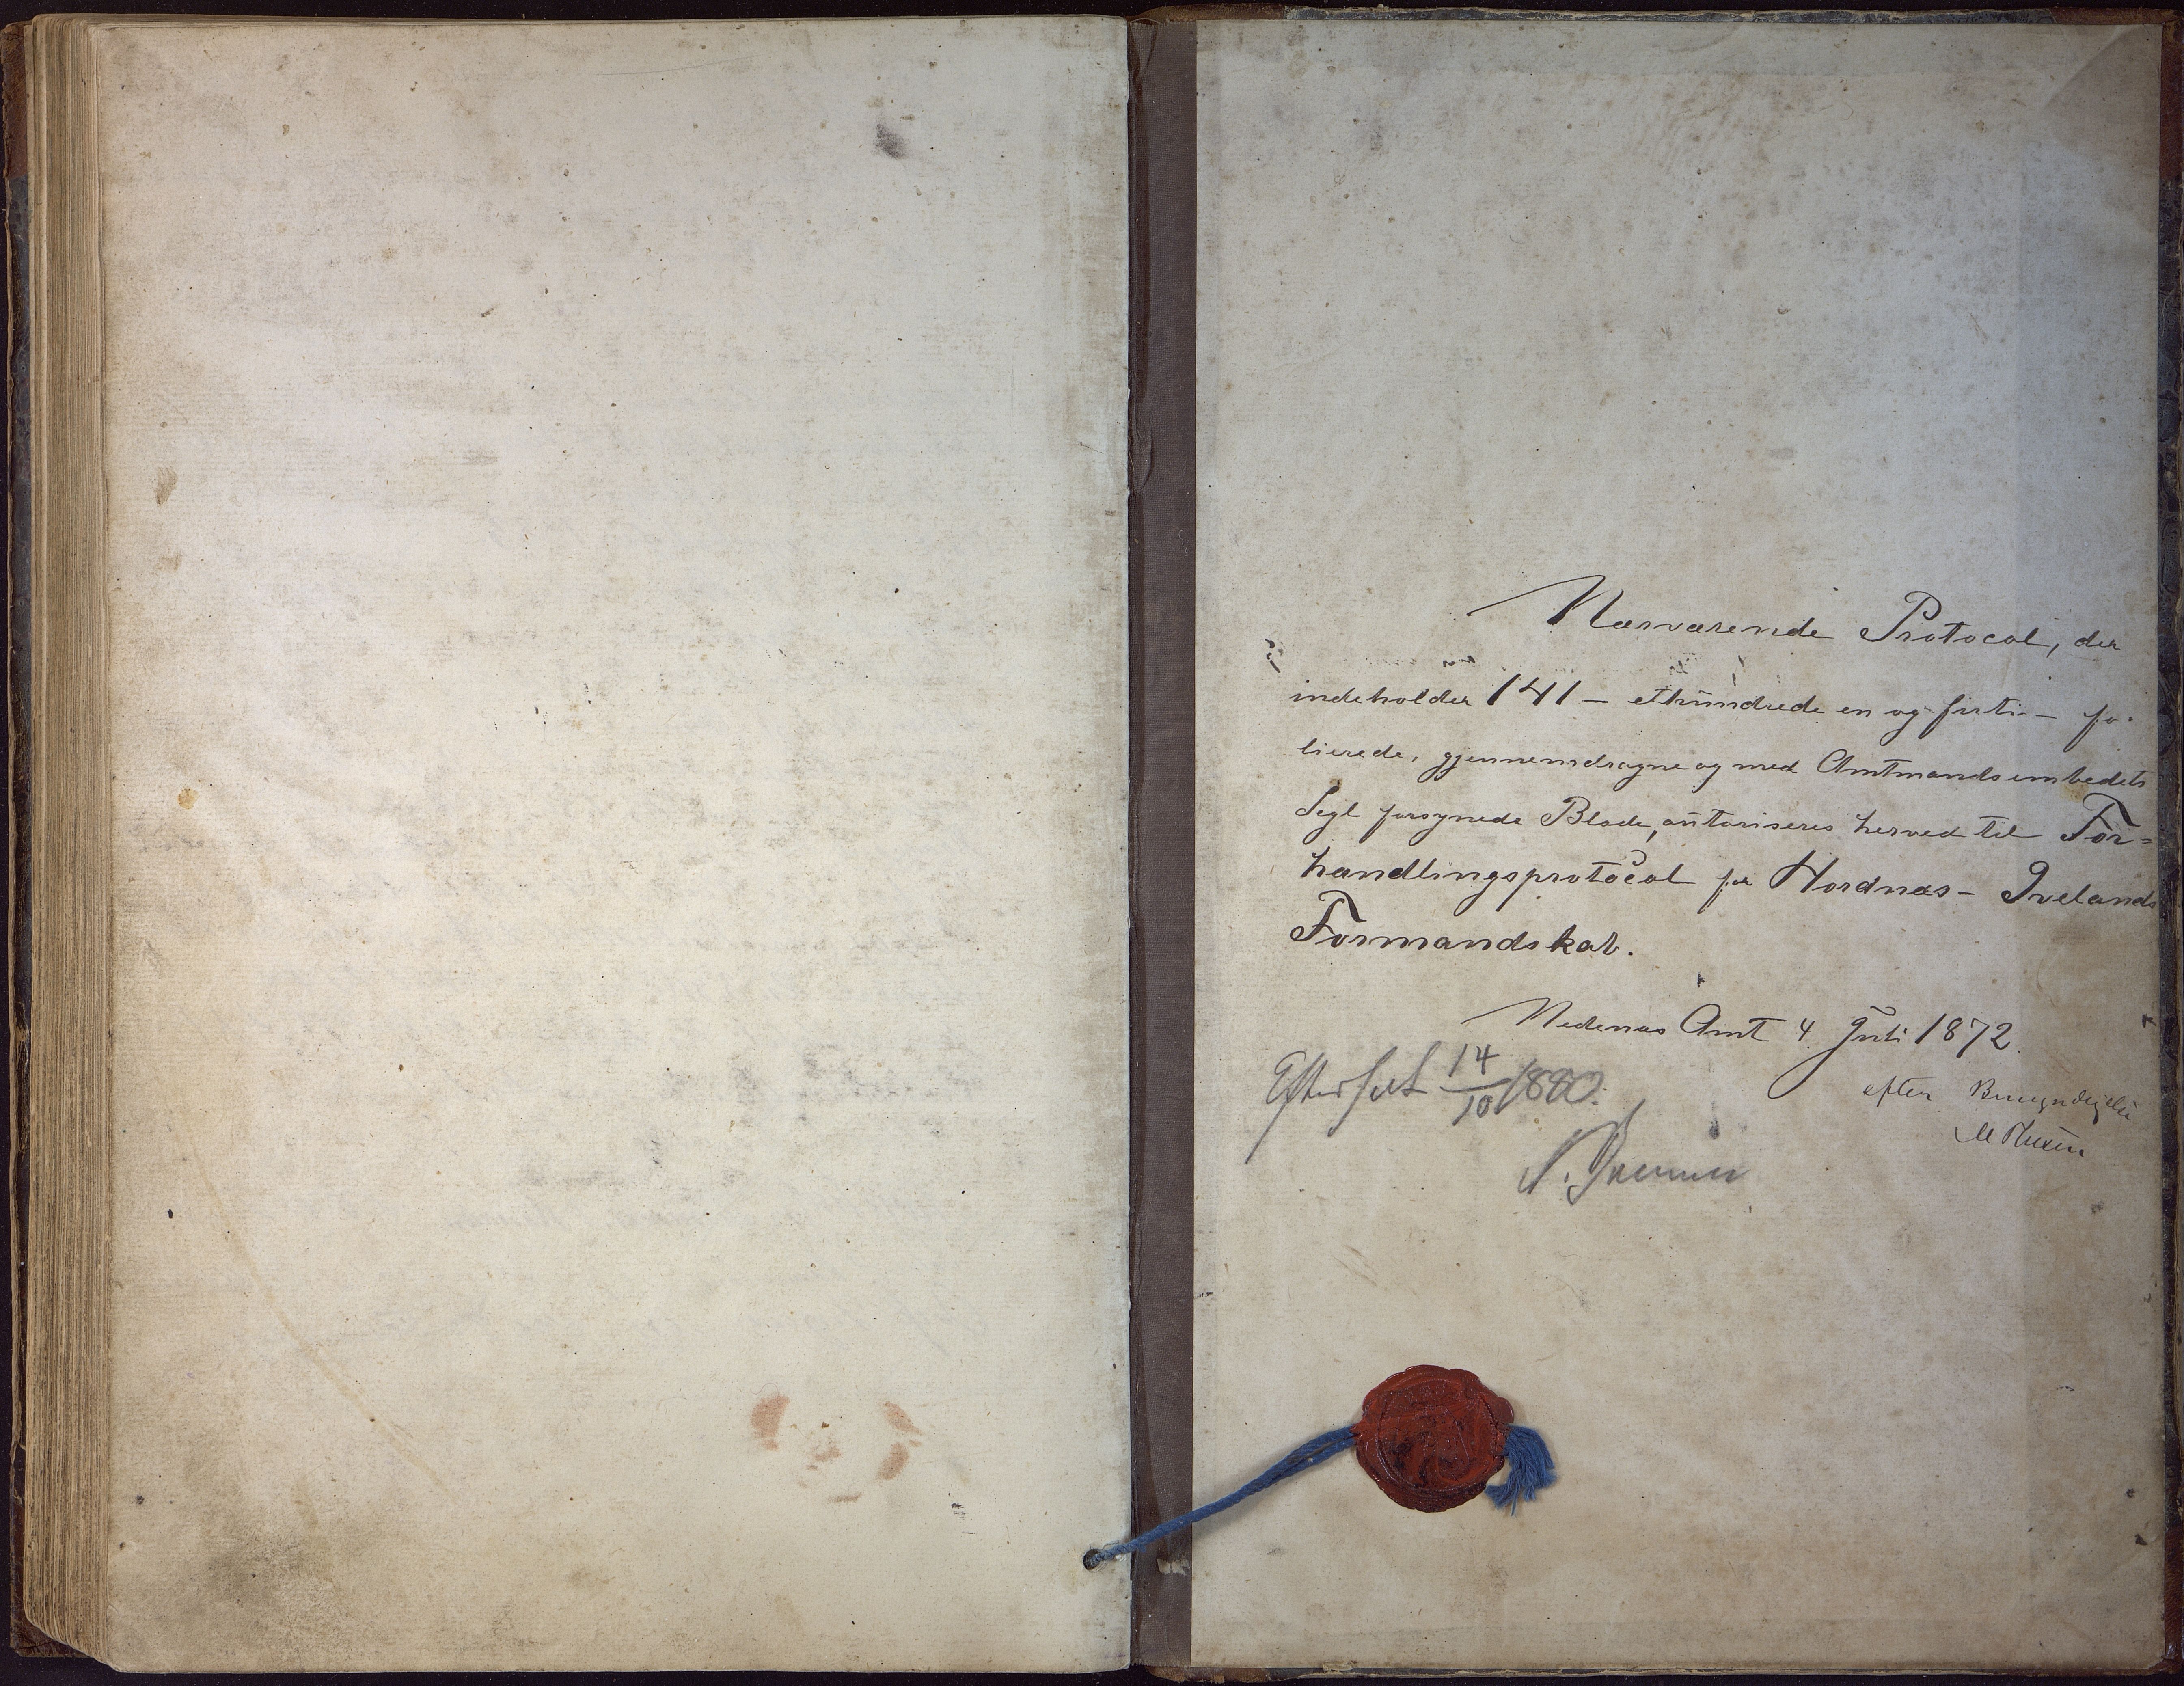 Nærværende Protocol, der
indeholder 141 – ethundrede en og førti – fo-
lierede, gjennemdragne og med Amtmandsembedets
Segl forsynede Blade, autoriseres herved til For=
handlingsprotocol for Hordnæs- Ivelands
Formandskab.
Nedenæs Amt 4 Juli 1872.
efter Bemyndigelse
Efterseet 14/10 1880.